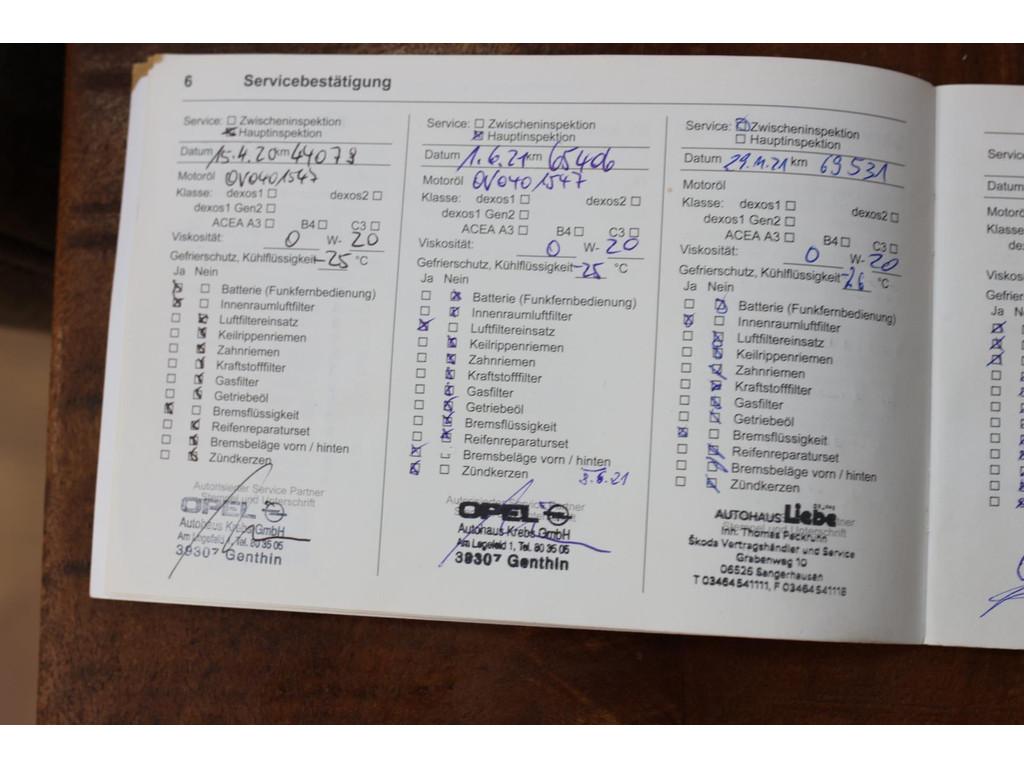 6 Servicebestätigung
Service: Zwischeninspektion
Hauptinspektion
Datum 15.4.20 km 44078
Motoröl OV0401547
Klasse: dexos1 dexos2
dexos1 Gen2
ACEA A3 B4 C3
Viskosität: 0 W- 20
Gefrierschutz, Kühlflüssigkeit -25 °C
Ja Nein
Batterie (Funkfernbedienung)
Innenraumluftfilter
Luftfiltereinsatz
Keilrippenriemen
Zahnriemen
Kraftstofffilter
Gasfilter
Getriebeöl
Bremsflüssigkeit
Reifenreparaturset
Bremsbeläge vorn / hinten
Zündkerzen
Autorisierter Service Partner
Stempel und Unterschrift
OPEL
Autohaus Krebs GmbH
Am Legefeld 1, Tel. 80 35 05
39307 Genthin
Service: Zwischeninspektion
Hauptinspektion
Datum 1.6.21 km 65406
Motoröl OV0401547
Klasse: dexos1 dexos2
dexos1 Gen2
ACEA A3 B4 C3
Viskosität: 0 W- 20
Gefrierschutz, Kühlflüssigkeit -25 °C
Ja Nein
Batterie (Funkfernbedienung)
Innenraumluftfilter
Luftfiltereinsatz
Keilrippenriemen
Zahnriemen
Kraftstofffilter
Gasfilter
Getriebeöl
Bremsflüssigkeit
Reifenreparaturset
Bremsbeläge vorn / hinten
Zündkerzen 3.6.21
Autorisierter Service Partner
OPEL
Autohaus Krebs GmbH
Am Legefeld 1, Tel. 80 35 05
39307 Genthin
Service: Zwischeninspektion
Hauptinspektion
Datum 29.11.21 km 69531
Motoröl
Klasse: dexos1 dexos2
dexos1 Gen2
ACEA A3 B4 C3
Viskosität: 0 W- 20
Gefrierschutz, Kühlflüssigkeit -26 °C
Ja Nein
Batterie (Funkfernbedienung)
Innenraumluftfilter
Luftfiltereinsatz
Keilrippenriemen
Zahnriemen
Kraftstofffilter
Gasfilter
Getriebeöl
Bremsflüssigkeit
Reifenreparaturset
Bremsbeläge vorn / hinten
Zündkerzen
AUTOHAUS Liebe
Stempel und Unterschrift
Inh. Thomas Peckruhn
Škoda Vertragshändler und Service
Grabenweg 10
06526 Sangerhausen
T 03464541111, F 03464541118
Service
Datum
Motorö
Klasse
Viskos
Gefrier
Ja N